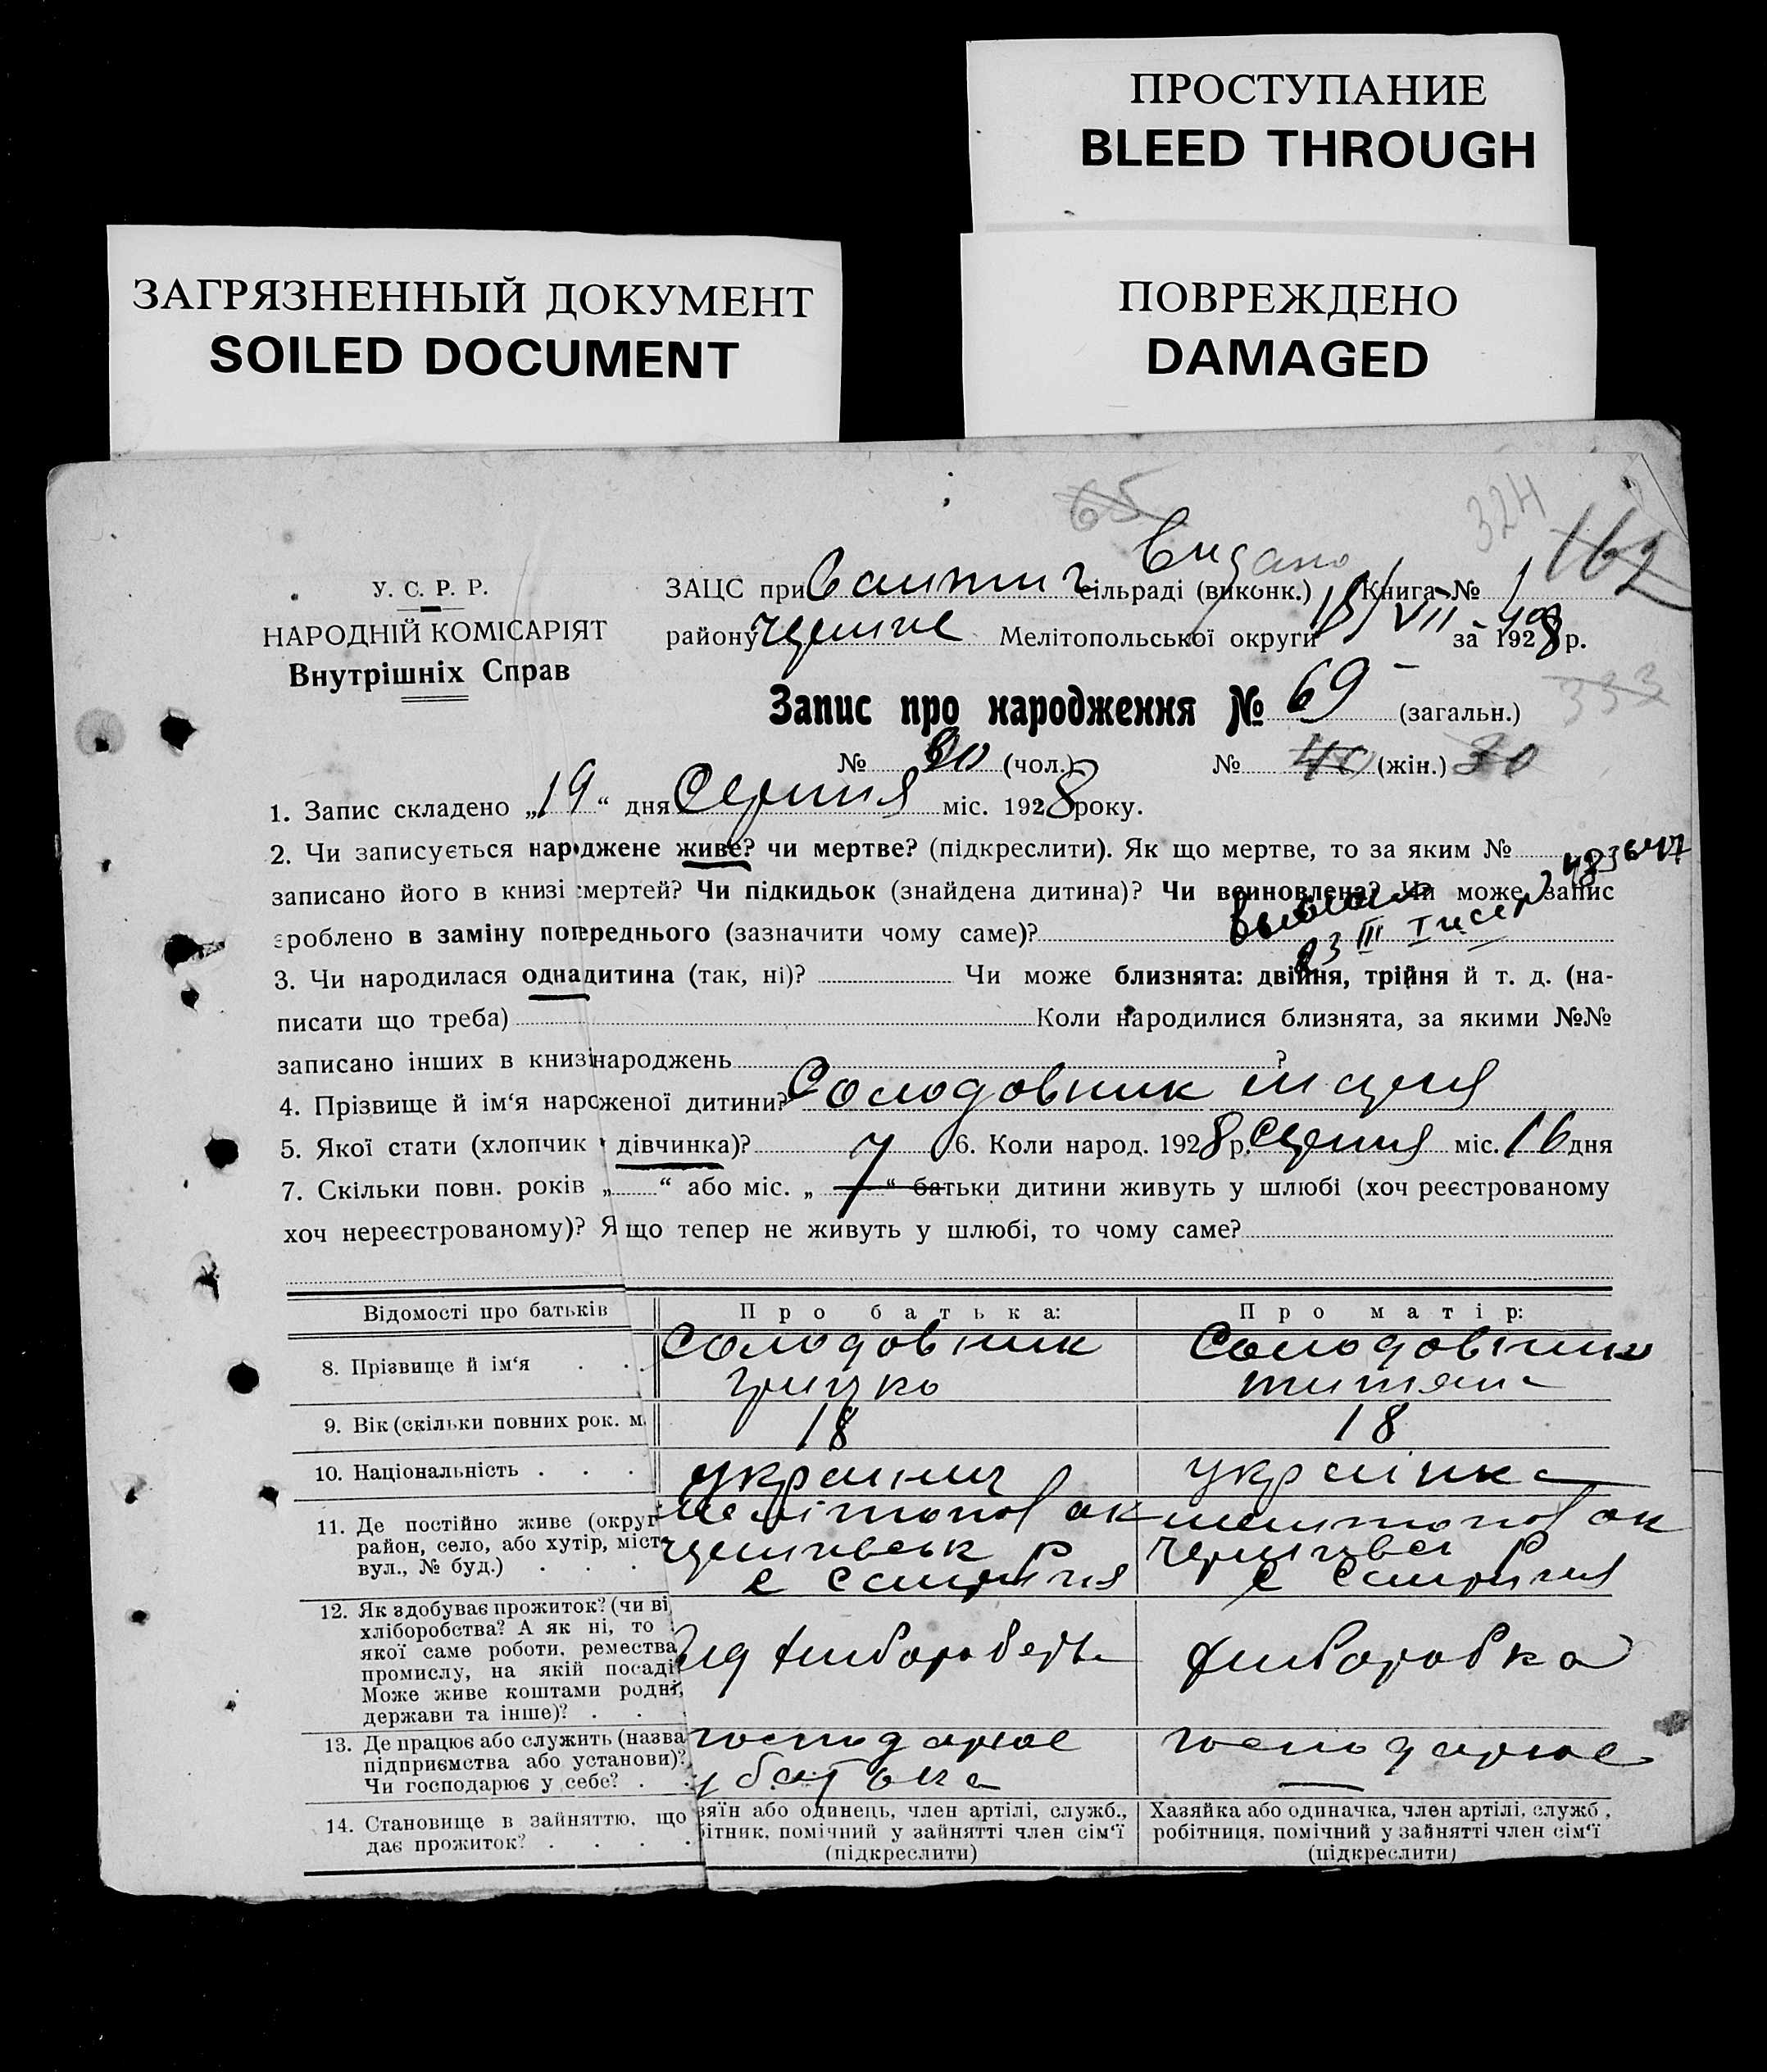 ПРОСТУПАНИЕ
BLEED THROUGH
ЗАГРЯЗНЕННЫЙ ДОКУМЕНТ
SOILED DOCUMENT
ПОВРЕЖДЕНО
DAMAGED
65
324
162
Видано
У. С. Р. Р.
НАРОДНІЙ КОМІСАРІЯТ
Внутрішніх Справ
ЗАЦС при сільраді (виконк.) Книга № 1
району Мелітопольської округи за 1928 р.
Запис про народження № 69 (загальн.)
333
№ (чол.) № 40 (жін.) 30
1. Запис складено „19“ дня Серпня міс. 1928 року.
2. Чи записується народжене живе? чи мертве? (підкреслити). Як що мертве, то за яким №
записано його в книзі смертей? Чи підкидьок (знайдена дитина)? Чи всиновлена? Чи може запис
зроблено в заміну попереднього (зазначити чому саме)?
3. Чи народилася одна дитина (так, ні)? Чи може близнята: двійня, трійня й т. д. (на-
писати що треба) Коли народилися близнята, за якими №№
записано інших в книзі народжень ?
4. Прізвище й ім'я народженої дитини? Солодовник
5. Якої стати (хлопчик дівчинка)? 6. Коли народ. 1928 р. Серпня міс. 16 дня
7. Скільки повн. років „ “ або міс. „ “ батьки дитини живуть у шлюбі (хоч реєстрованому
хоч нереєстрованому)? Якщо тепер не живуть у шлюбі, то чому саме?
Відомості про батьків
Про батька:
Про матір:
8. Прізвище й ім'я . .
Солодовник
Грицко
Солодовник
9. Вік (скільки повних рок. м.
18
18
10. Національність . . .
українець
українка
11. Де постійно живе (округ
район, село, або хутір, місто
вул., № буд.) . . .
Мелітопол ок
Мелитопол ок
12. Як здобуває прожиток? (чи від
хліборобства? А як ні, то
якої саме роботи, ремества
промислу, на якій посаді
Може живе коштами родні,
держави та інше)? .
13. Де працює або служить (назва
підприємства або установи)?
Чи господарює у себе? .
господарює
у батька
господарює
14. Становище в зайняттю, що
дає прожиток? . . . .
зяїн або одинець, член артілі, служб.,
бітник, помічний у зайнятті член сім'ї
(підкреслити)
Хазяйка або одиначка, член артілі, служб.,
робітниця, помічний у зайнятті член сім'ї
(підкреслити)